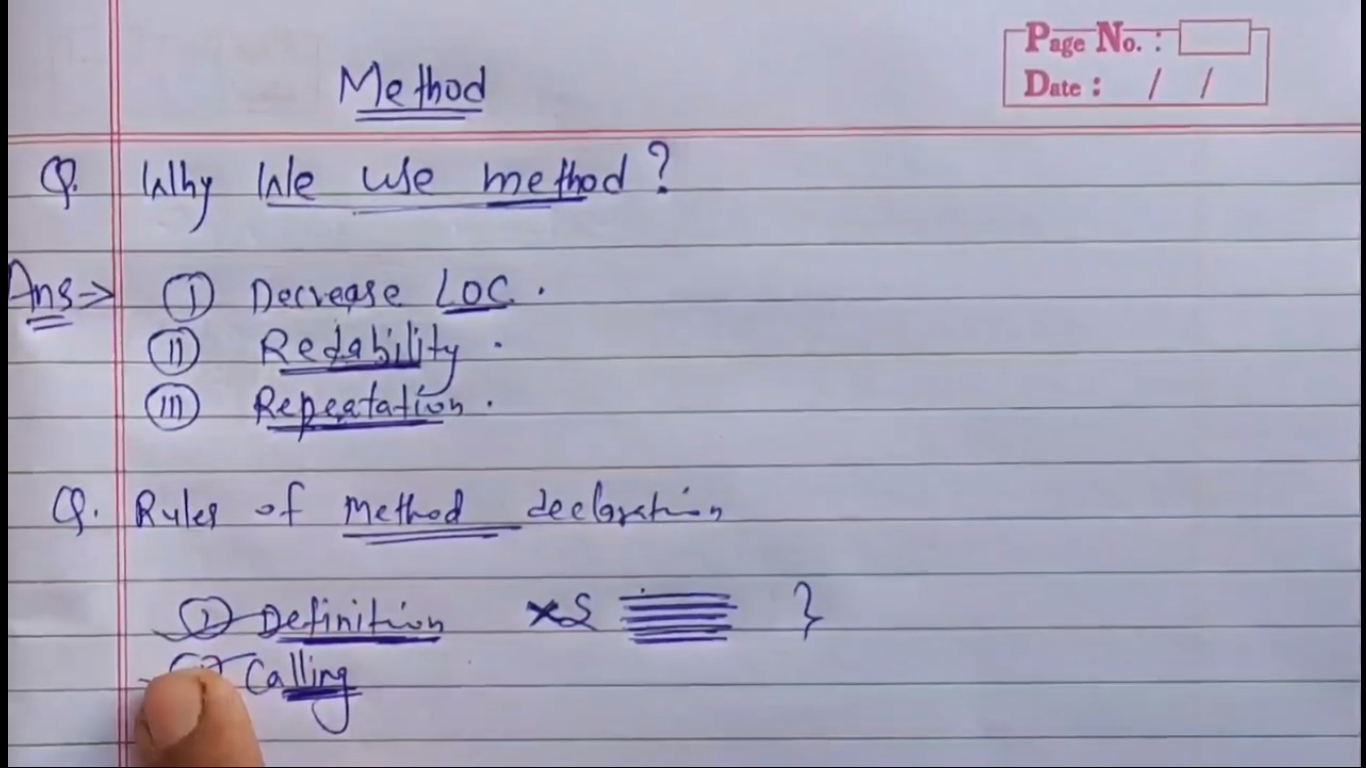 Page No. :
Date : / /
Method
Q. Why We use method ?
Ans ⇒ (I) Decrease LOC .
(II) Redability .
(III) Repeatation .
Q. Rules of Method declaration
Definition × { }
Calling